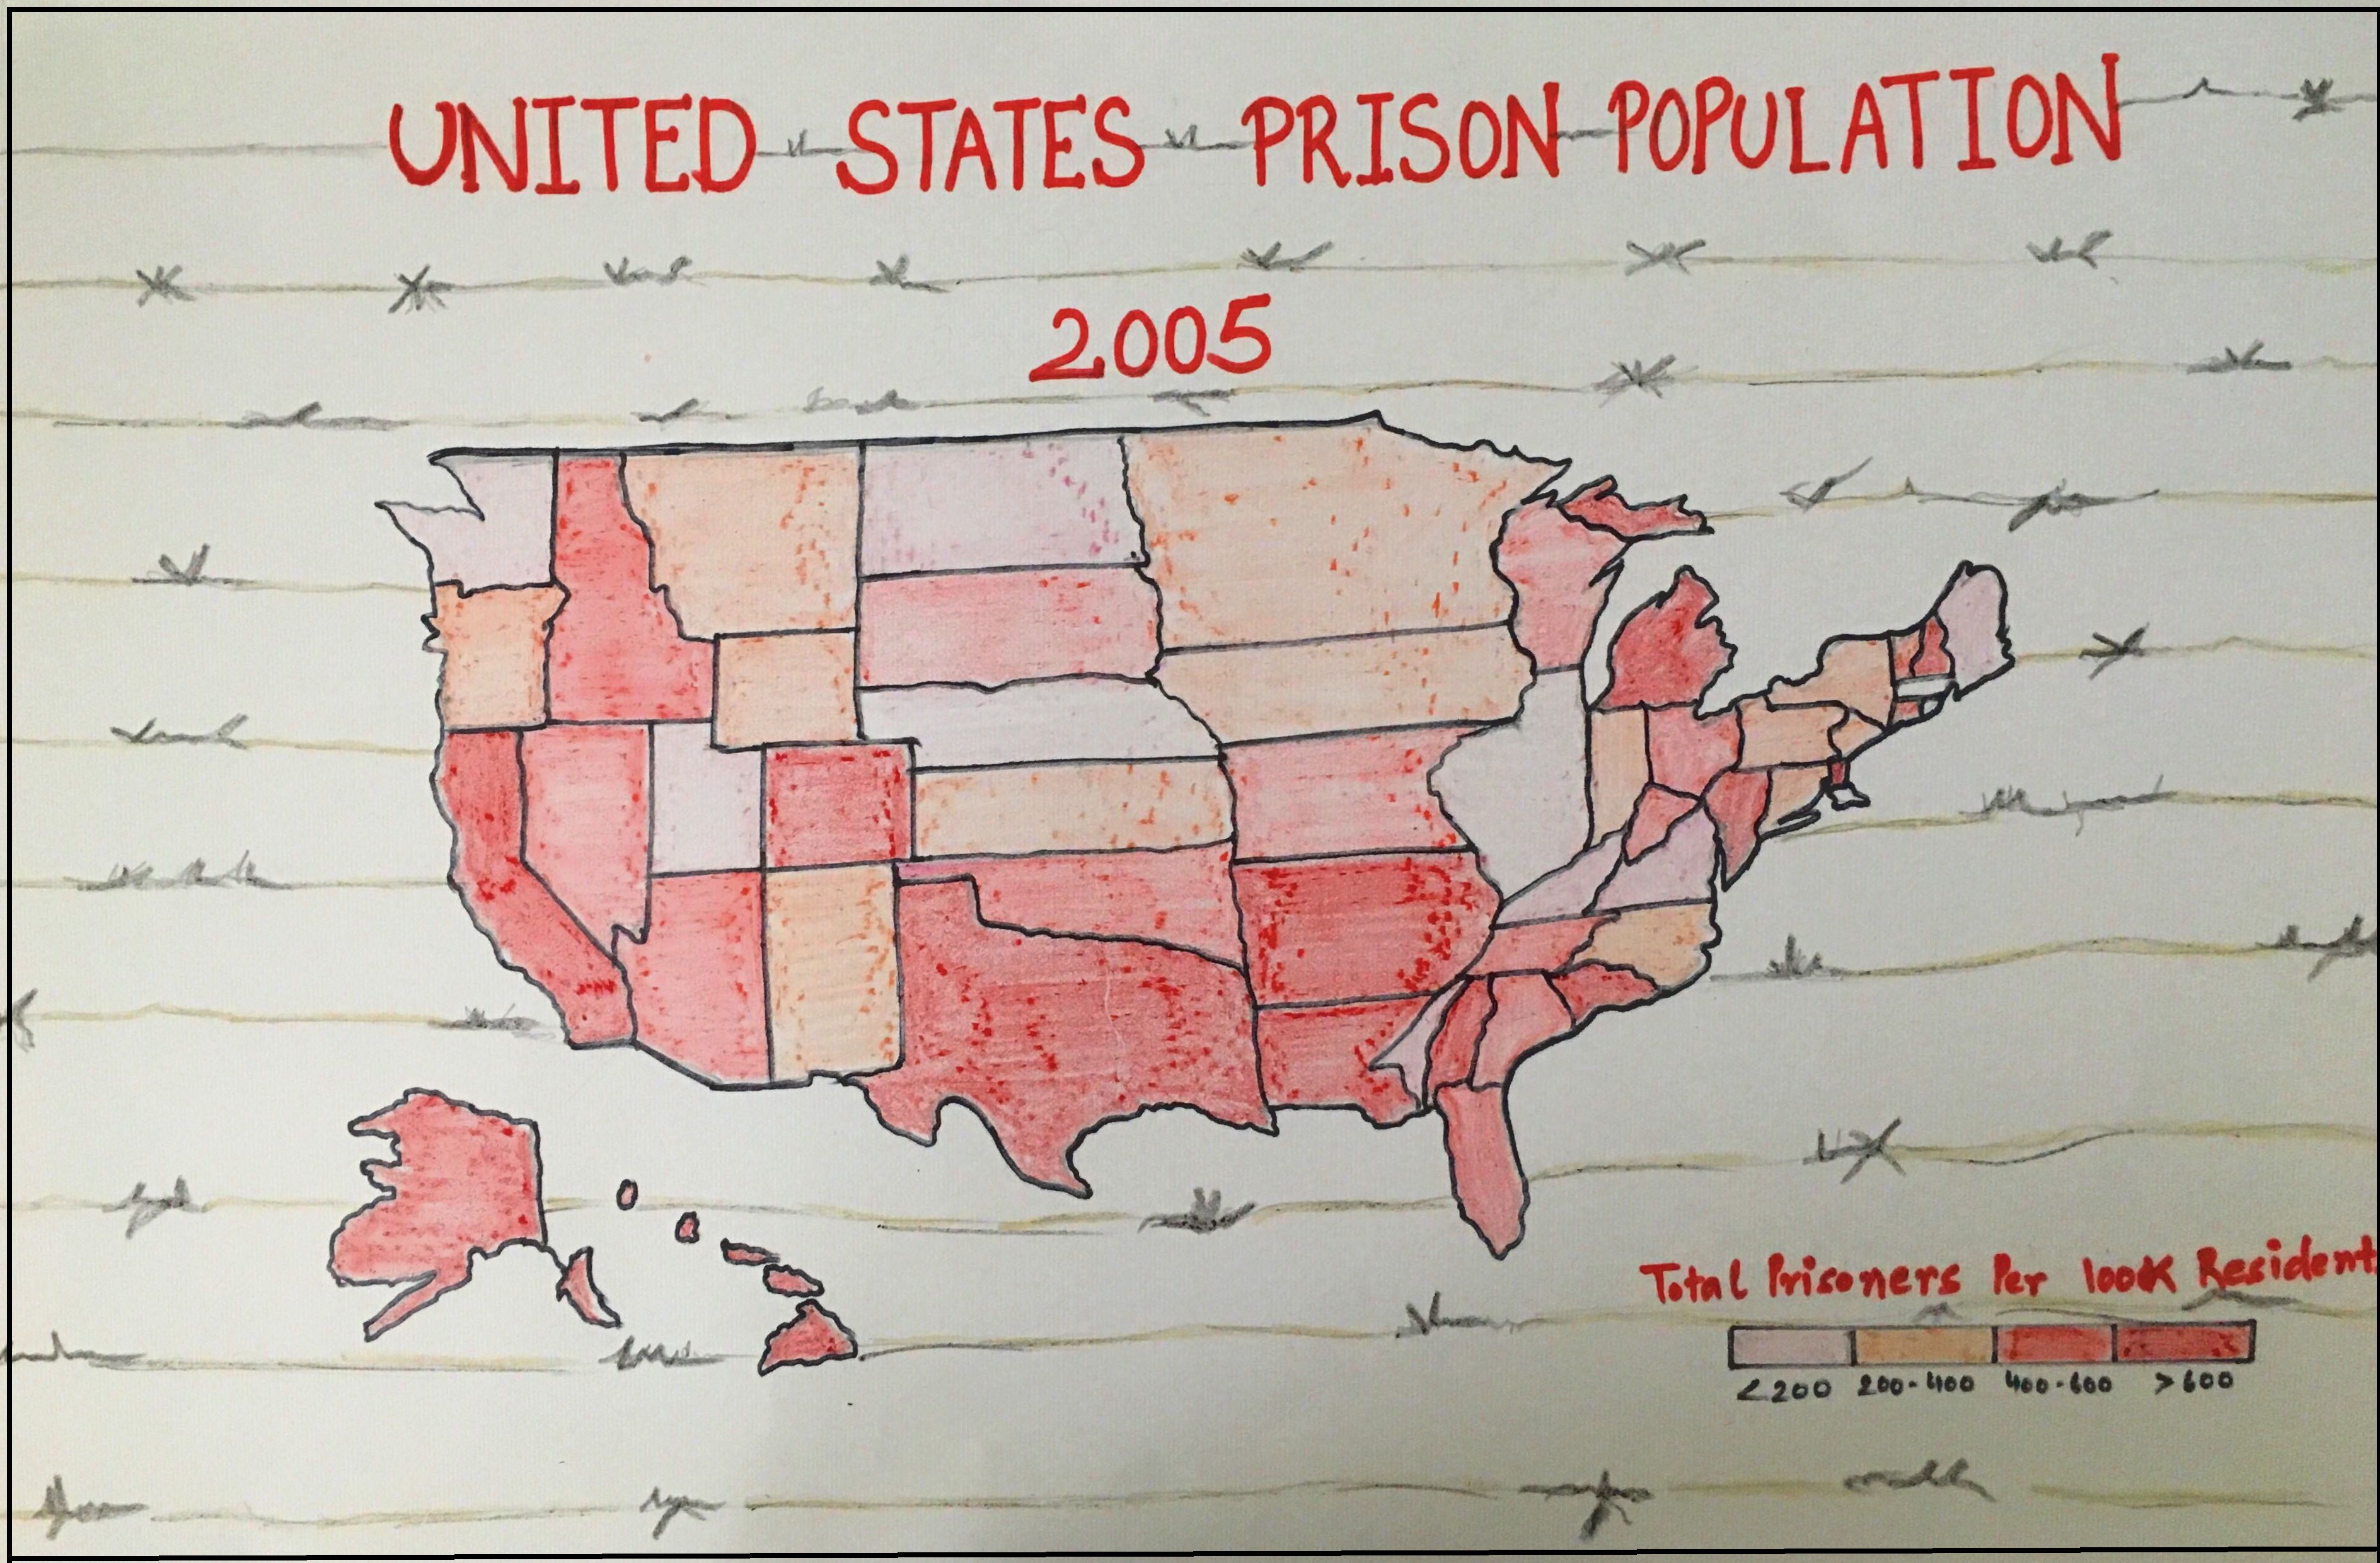 UNITED STATES PRISON POPULATION
2005
Total Prisoners Per 100K Resident
<200 200-400 400-600 >600